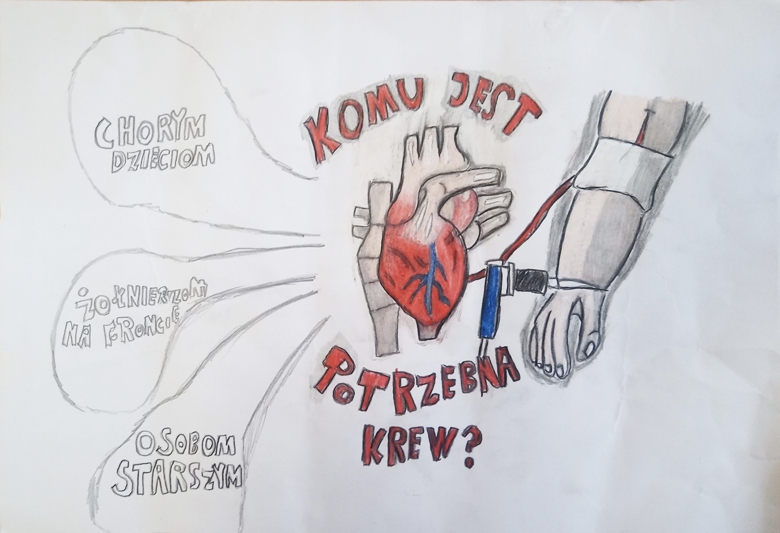 KOMU JEST
POTRZEBNA
KREW?
CHORYM
DZIECIOM
ŻOŁNIERZOM
NA FRONCIE
OSOBOM
STARSZYM